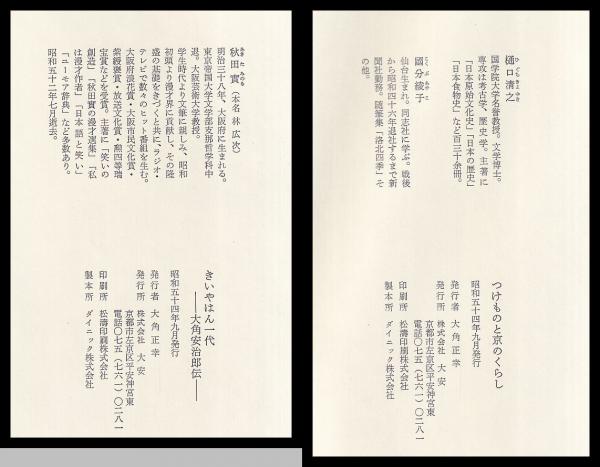 樋口清之
ひぐちきよゆき
国学院大学名誉教授。文学博士。
専攻は考古学、歴史学。主著に
「日本原始文化史」「日本の歴史」
「日本食物史」など百三十余冊。
國分綾子
こくぶあやこ
仙台生まれ。同志社に学ぶ。戦後
から昭和四十六年退社するまで新
聞社勤務。随筆集「洛北四季」そ
の他。
つけものと京のくらし
昭和五十四年九月発行
発行者 大角正幸
発行所 株式会社 大安
京都市左京区平安神宮東
電話〇七五(七六一)〇二八一
印刷所 松濤印刷株式会社
製本所 ダイニック株式会社
秋田實(本名 林 広次)
あきたみのる
明治三十八年、大阪府に生まれる。
東京帝国大学文学部支那哲学科中
退。大阪芸術大学教授。
学生時代より文筆に親しみ、昭和
初頭より漫才界に貢献し、その隆
盛の基礎をきづくと共に、ラジオ・
テレビで数々のヒット番組を生む。
大阪府淡花賞・大阪市民文化賞・
紫綬褒賞・放送文化賞・勲四等瑞
宝賞などを受賞。主著に「笑いの
創造」「秋田實の漫才選集」「私
は漫才作者」「日本語と笑い」
「ユーモア辞典」など多数あり。
昭和五十二年七月逝去。
きいやはん一代
――大角安治郎伝――
昭和五十四年九月発行
発行者 大角正幸
発行所 株式会社 大安
京都市左京区平安神宮東
電話〇七五(七六一)〇二八一
印刷所 松濤印刷株式会社
製本所 ダイニック株式会社